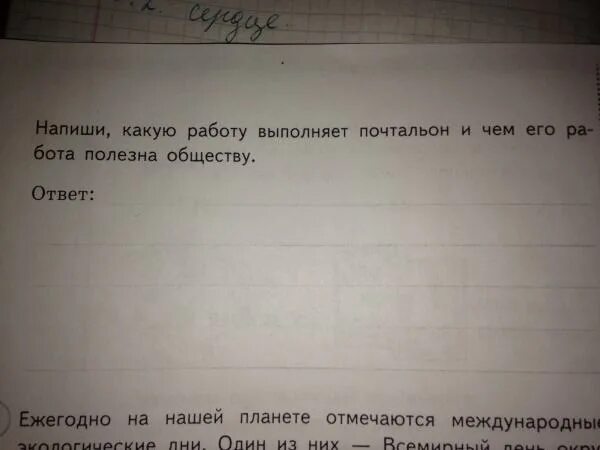 сердце.
Напиши, какую работу выполняет почтальон и чем его ра-
бота полезна обществу.
Ответ:
Ежегодно на нашей планете отмечаются международные
экологические дни. Один из них — Всемирный день окру